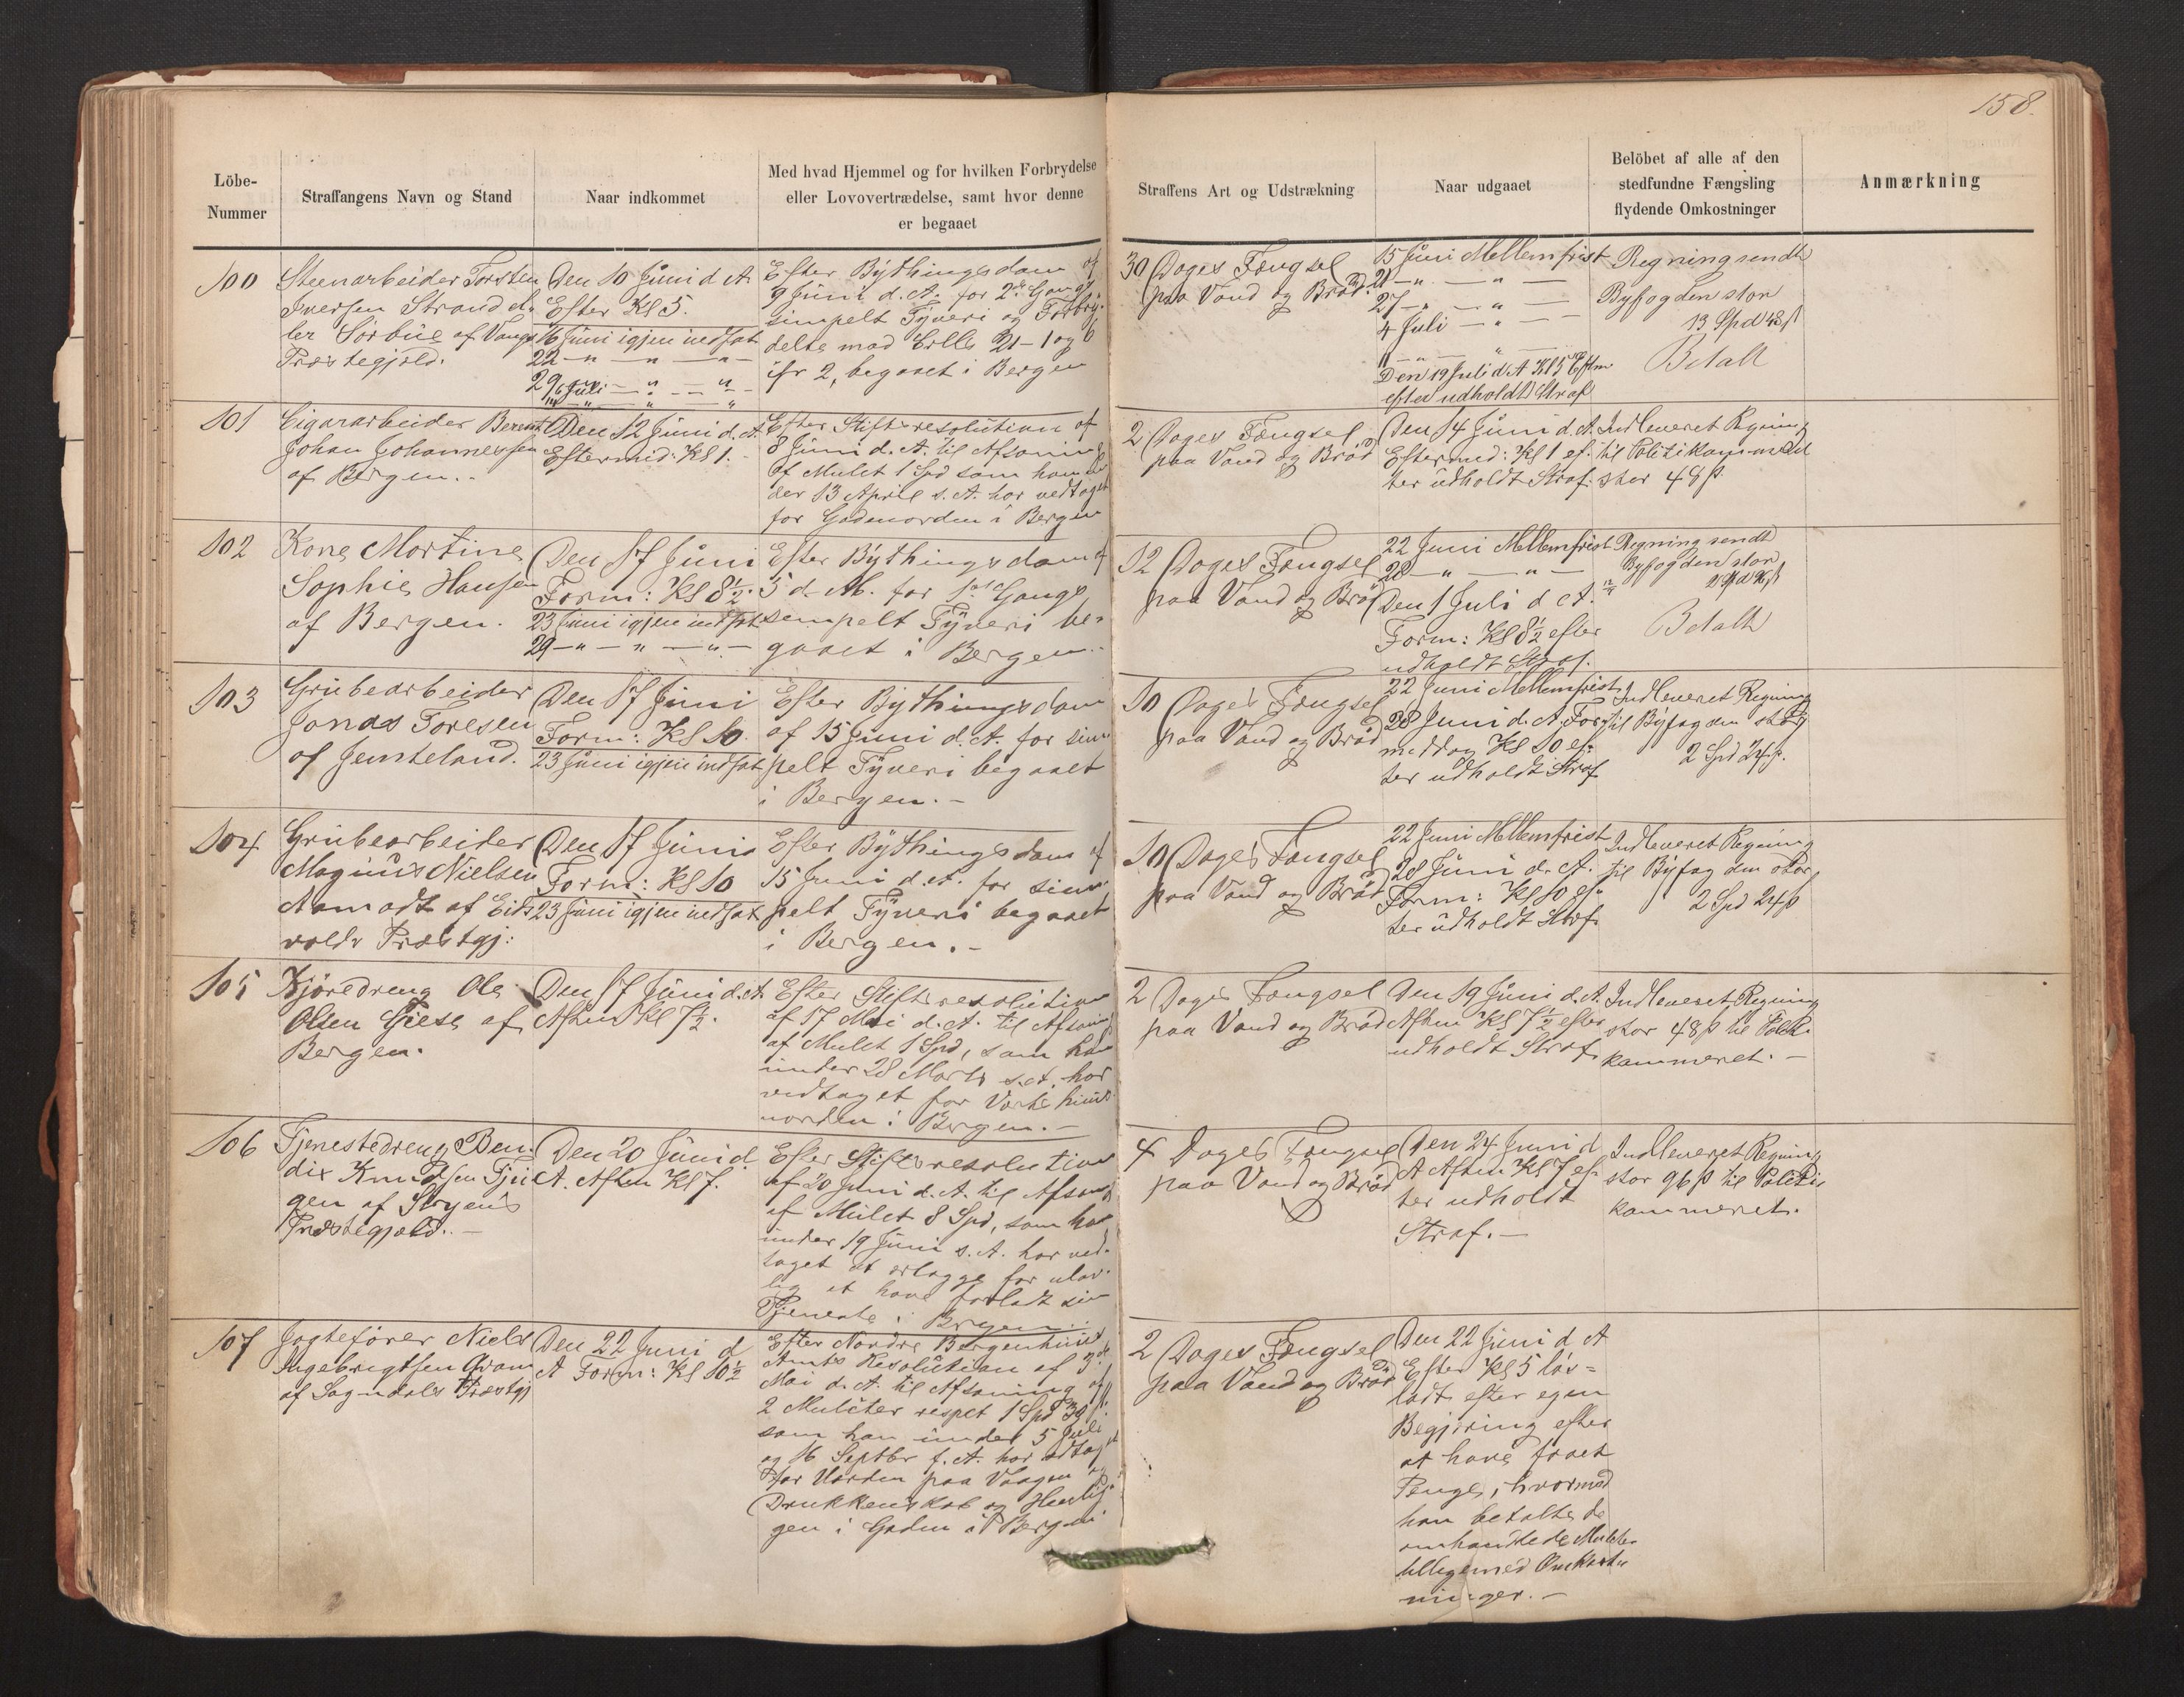 158.
Löbe-
Nummer
Straffangens Navn og Stand
Naar indkommet
Med hvad Hjemmel og for hvilken Forbrydelse
eller Lovovertrædelse, samt hvor denne
er begaaet
Straffens Art og Udstrækning
Naar udgaaet
Belöbet af alle af den
stedfundne Fængsling
flydende Omkostninger
Anmærkning
100
Steenarbeider Torsten
Iversen Strand el-
ler Sörbüe af Vangs
Præstegjeld.
Den 10 Juni d. A.
Efter Kl 5.
16 Juni igjen indsat
22 — " — " — " —
29 — " — " — "
Juli — " — "
Efter Bythingsdom af
9 Juni d. A. for 2den Gang
simpelt Tyveri og Forbry-
delse mod Crll 21-1 og 6
jfr 2, begaaet i Bergen
30 Dages Fængsel
paa Vand og Bröd.
15 Juni Mellemfrist
21 — " — " —
27 — " — " —
4 Juli — " —
11 — " — " —
Den 19 Juli d. A Kl 5 Eftm
efter udholdt Straf
Regning sendt
Byfogden stor
13 Spd 48 ß
Betalt
101
Cigararbeider Berent
Johan Johannessen
af Bergen.
Den 12 Juni d. A.
Eftermid: Kl 1.
Efter Stiftsresolution af
8 Juni d. A. til Afsoning
af Mulct 1 Spd som han un-
der 13 April s. A. har vedtaget
for Gadeuorden i Bergen
2 Dages Fængsel
paa Vand og Bröd
Den 14 Juni d. A.
Eftermid: Kl 1 ef-
ter udholdt Straf.
Indleveret Regning
til Politikammeret
stor 48 ß.
102
Kone Martine
Sophie Hansen
af Bergen.
Den 17 Juni
Form: Kl 8½.
23 Juni igjen indsat
29 — " — " — " —
Efter Bythingsdom af
5 d. M. for 1ste Gang
simpelt Tyveri be-
gaaet i Bergen.
12 Dages Fængsel
paa Vand og Bröd
22 Juni Mellemfrist
28 — " — " —
Den 1 Juli d. A.
Form: Kl 8½ efter
udholdt Straf.
Regning sendt
Byfogden stor
Betalt
103
Grubearbeider
Jonas Toresen
af Jemteland.
Den 17 Juni
Form: Kl 10.
23 Juni igjen indsat
Efter Bythingsdom
af 15 Juni d. A. for sim-
pelt Tyveri begaaet
i Bergen. —
10 Dages Fængsel
paa Vand og Bröd
22 Juni Mellemfrist
28 Juni d. A. For-
middag Kl 10 ef-
ter udholdt Straf
Indleveret Regning
til Byfogden stor
2 Spd 24 ß.
104
Grubearbeider
Magnus Nielsen
Aamodt af Eids-
volds Præstgj:
Den 17 Juni
Form: Kl 10
23 Juni igjen indsat
Efter Bythingsdom af
15 Juni d. A. for sim-
pelt Tyveri begaaet
i Bergen. —
10 Dages Fængsel
paa Vand og Bröd
22 Juni Mellemfrist
28 Juni d. A.
Form: Kl 10 ef-
ter udholdt Straf.
Indleveret Regning
til Byfogden stor
2 Spd 24 ß
105
Kjöredreng Ole
Olsen Giese af
Bergen.
Den 17 Juni d. A.
Aften Kl 7½.
Efter Stiftsresolution
af 17 Mai d. A. til Afsoning
af Mulct 1 Spd, som han
under 28 Marts s. A. har
vedtaget for Værtshuus-
uorden i Bergen. —
2 Dages Fængsel
paa Vand og Bröd
Den 19 Juni d. A.
Aften Kl 7½ efter
udholdt Straf.
Indleveret Regning
stor 48 ß til Politi-
kammeret. —
106
Tjenestedreng Ben-
dix Knudsen Tjü-
gen af Stryens
Præstegjæld. —
Den 20 Juni d.
A. Aften Kl 7.
Efter Stiftsresolution
af 20 Juni d. A. til Afsoning
af Mulct 8 Spd, som han
under 19 Juni s. A. har ved-
taget at erlægge for ulov-
lig at have forladt sin
Tjeneste i Bergen.
4 Dages Fængsel
paa Vand og Bröd
Den 24 Juni d
A Aften Kl 7 ef-
ter udholdt
Straf. —
Indleveret Regning
stor 96 ß til Politi-
kammeret.
107
Jægtefører Niels
Ingebrigtsen Aram
af Sogndals Præstgj
Den 22 Juni d
A Form: Kl 10½
Efter Nordre Bergenhus
Amts Resolution af 3de
Mai d. A. til Afsoning af
2 Mulcter respct 1 Spd
som han under 5 Juli
og 16 Septbr f. A. har vedtaget
for Uorden paa Vaagen og
Drukkenskab og
gen i Gaden i Bergen.
2 Dages Fængsel
paa Vand og Bröd
Den 22 Juni d A
Efter Kl 5 lös-
ladt efter egen
Begjæring efter
at have faaet
Penge, hvormed
han betalte de
omhandlede Mulcter
tilligemed Omkost-
ninger. —